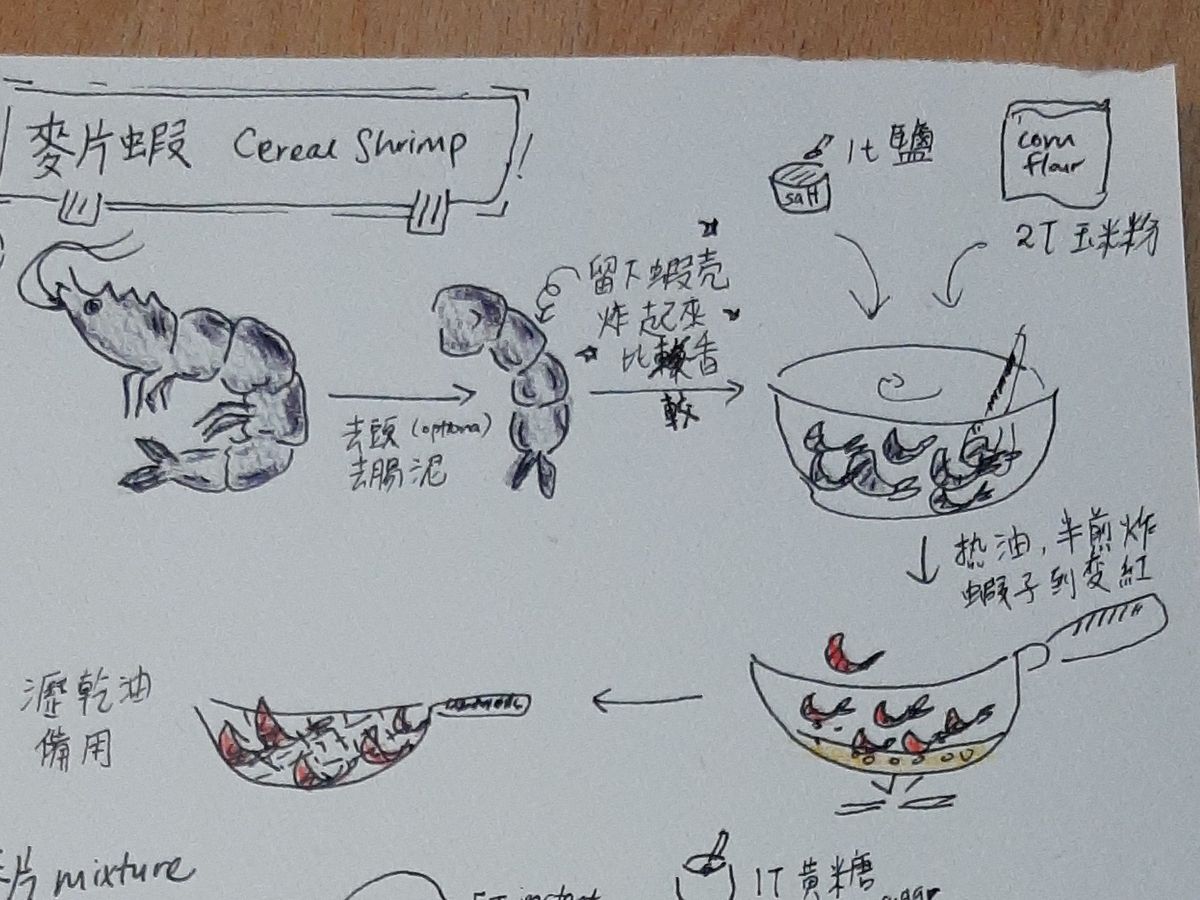 麥片蝦 Cereal Shrimp
salt
1t 鹽
corn
flour
2T 玉米粉
留下蝦殼
炸起來
比較香
較
去頭 (optional)
去腸泥
热油，半煎炸
蝦子到变紅
瀝乾油
備用
片 mixture
1T 黃糖